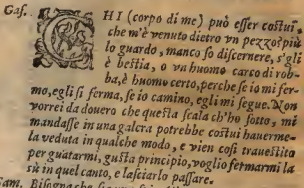 Gas. CHI (corpo di me) può eſſer coſtui,
che m'è venuto dietro vn pezzo? più
lo guardo, manco ſo diſcernere, s'gli
è beſtia, o vn huomo carco di rob-
ba, è huomo certo, perche ſe io mi fer-
mo, egli ſi ferma, ſe io camino, egli mi ſegue. Non
vorrei da douero che queſta ſcala ch'ho ſotto, mi
mandaſſe in una galera potrebbe coſtui hauerme-
la veduta in qualche modo, e vien coſi traueſtito
per guatarmi, guſta principio, voglio fermarmi la
sù in quel canto, e laſciarlo paſſare.